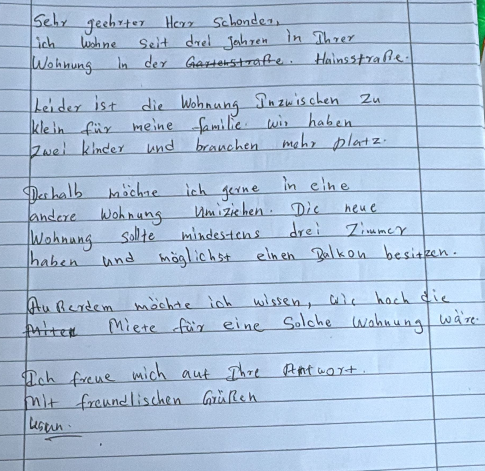 Sehr geehrter Herr Schonder,
ich wohne seit drei Jahren in Ihrer
Wohnung in der Gartenstraße. Hainsstraße.
Leider ist die Wohnung Inzwischen zu
klein für meine familie. wir haben
zwei kinder und brauchen mehr platz.
Deshalb möchte ich gerne in eine
andere Wohnung Umiziehen. Die neue
Wohnung sollte mindestens drei Zimmer
haben und möglichst einen Balkon besitzen.
Außerdem möchte ich wissen, wie hoch die
Miete für eine Solche Wohnung wäre.
Ich freue mich auf Ihre Antwort.
Mit freundlischen Grüßen